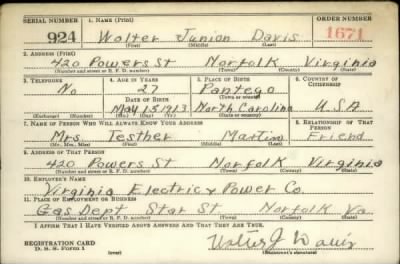 SERIAL NUMBER 1. NAME (Print) ORDER NUMBER
924 Walter Junion Davis 1671
(First) (Middle) (Last)
2. ADDRESS (Print)
420 Powers St Norfolk Virginia
(Number and street or R. F. D. number) (Town) (County) (State)
3. TELEPHONE 4. AGE IN YEARS 5. PLACE OF BIRTH 6. COUNTRY OF CITIZENSHIP
No 27 Pantego
DATE OF BIRTH (Town or county)
May 15 1913 North Carolina U.S.A
(Exchange) (Number) (Mo.) (Day) (Yr.) (State or country)
7. NAME OF PERSON WHO WILL ALWAYS KNOW YOUR ADDRESS 8. RELATIONSHIP OF THAT PERSON
Mrs. Testher Martin Friend
(Mr., Mrs., Miss) (First) (Middle) (Last)
9. ADDRESS OF THAT PERSON
420 Powers St Norfolk Virginia
(Number and street or R. F. D. number) (Town) (County) (State)
10. EMPLOYER'S NAME
Virginia Electric & Power Co.
11. PLACE OF EMPLOYMENT OR BUSINESS
Gas Dept Star St Norfolk Va
(Number and street or R. F. D. number) (Town) (County) (State)
I AFFIRM THAT I HAVE VERIFIED ABOVE ANSWERS AND THAT THEY ARE TRUE.
REGISTRATION CARD
D. S. S. Form 1 (over) Walter J Davis
(Registrant's signature)